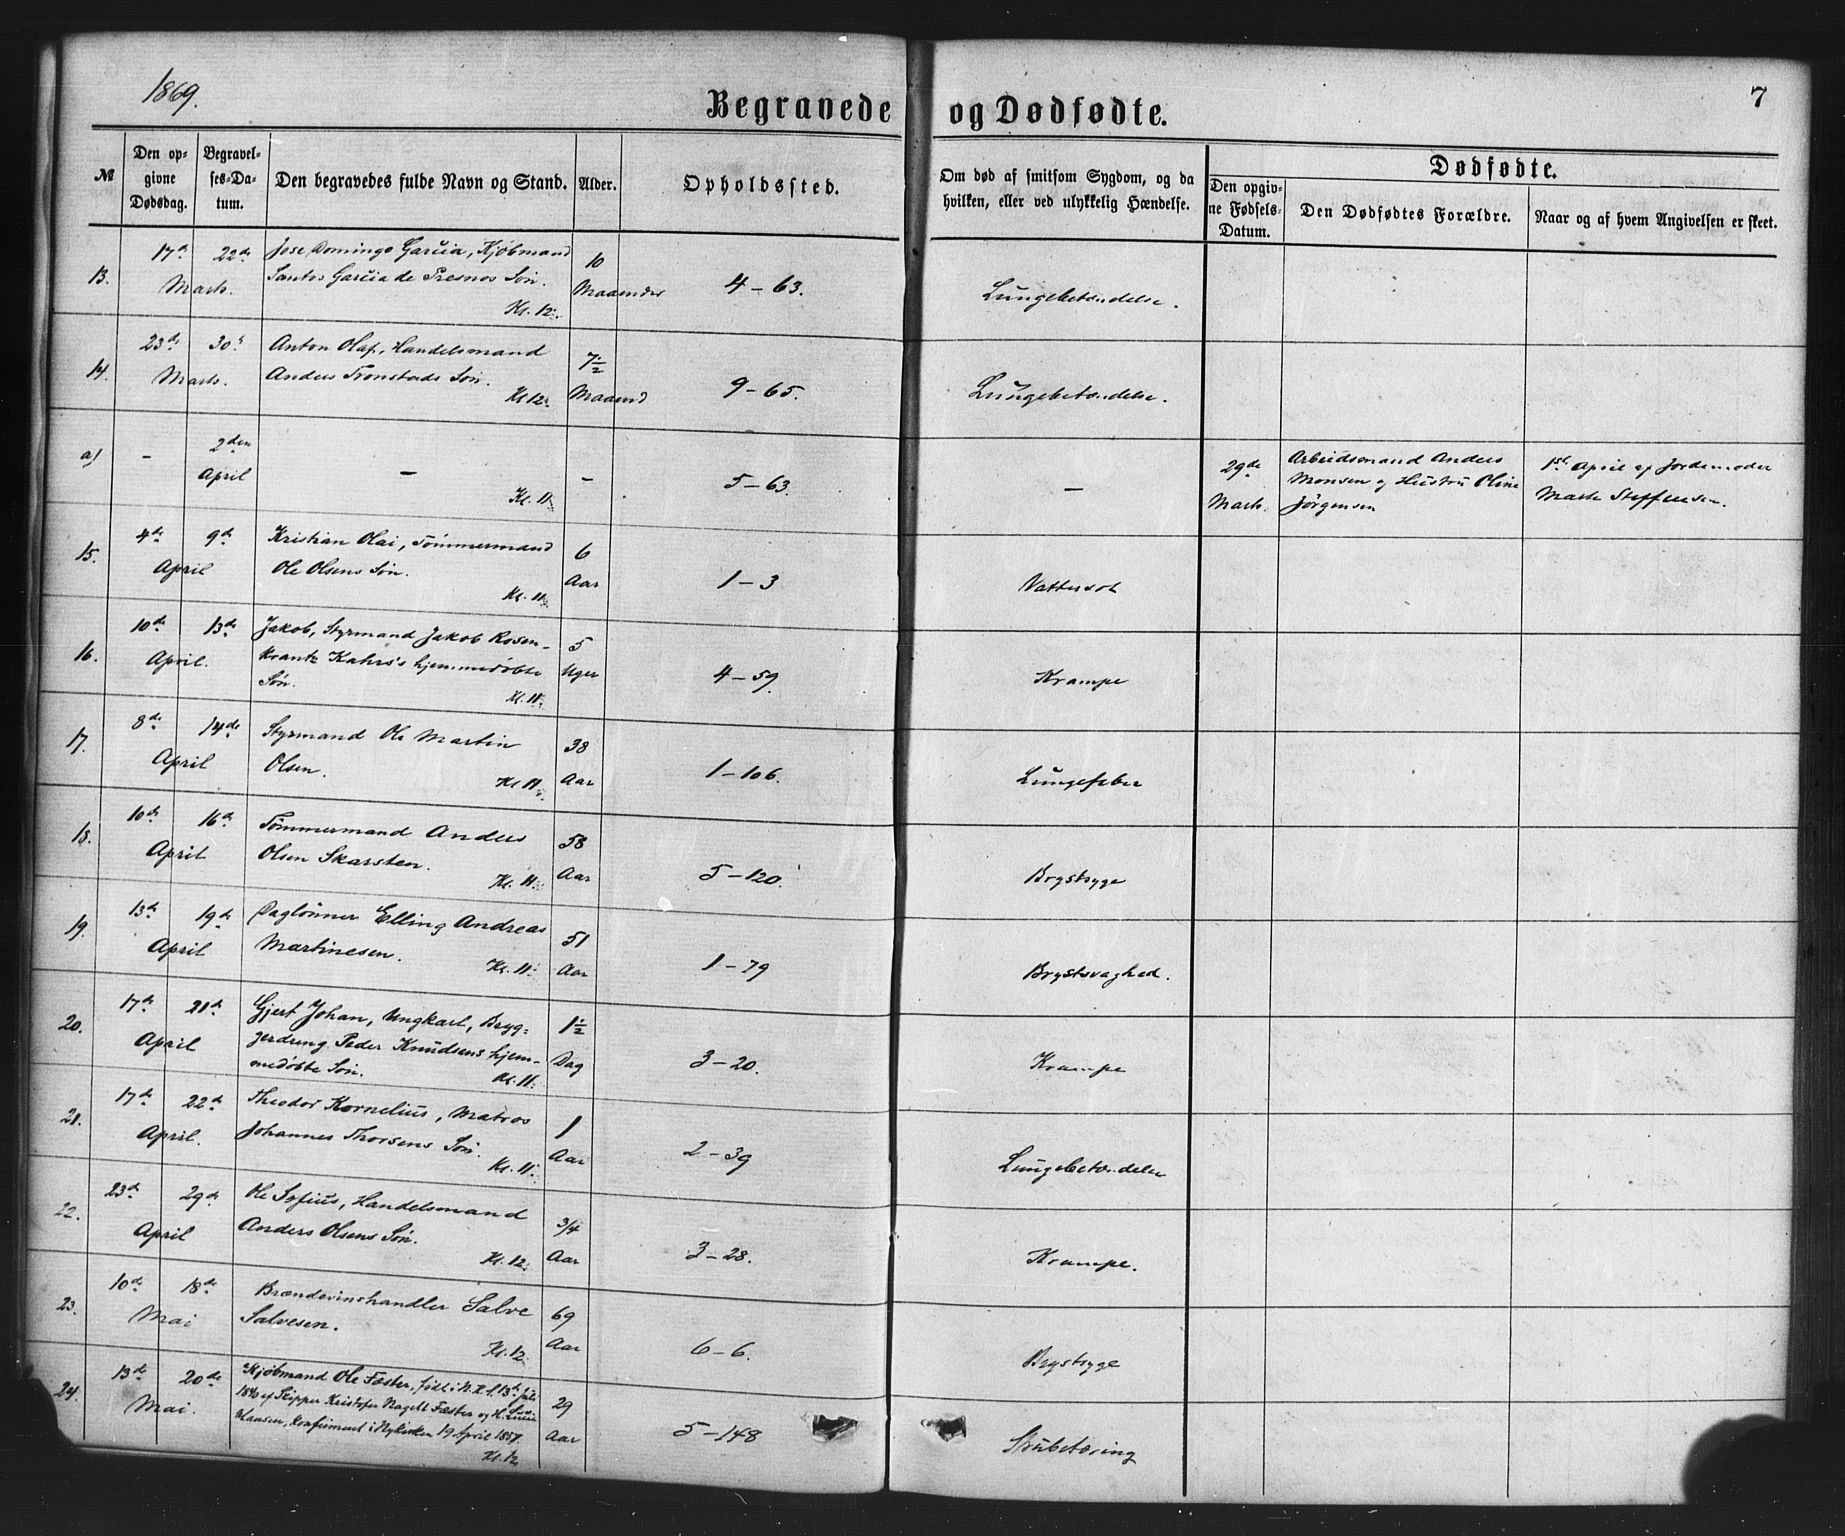 1869.
7
Begravede og Dødfødte.
№
Den opgivne Dødsdag.
Begravelses-Datum.
Den begravedes fulde Navn og Stand.
Alder.
Opholdssted.
Om død af smitsom Sygdom, og da
hvilken, eller ved ulykkelig Hændelse.
Dødfødte.
Den opgivne Fødsels-Datum.
Den Dødfødtes Forældre.
Naar og af hvem Angivelsen er skeet.
13. 17de 22de Marts.
Jose Domingo Garcia, Kjøbmand
Santos Garcia de Presnos Søn.
Kl. 12.
10 Maaneder
4 – 63.
Lungebetændelse.
14. 23de 30te Marts.
Anton Olaf, Handelsmand
Anders Tronstads Søn.
Kl 12.
7½ Maaned
9 – 65.
Lungebetændelse.
a) – 2den April
–
Kl. 11
–
5 – 63.
–
29de Marts.
Arbeidsmand Anders
Monsen og Hustru Oline
Jørgensen
1ste April af Jordemoder
Marte Steffensen.
15. 4de 9de April
Kristian Olai, Tømmermand
Ole Olsens Søn.
Kl. 11
6 Aar
1 – 3
Vattersot
16. 10de 13de April.
Jakob, Styrmand Jakob Rosen-
krantz Kahrs's hjemmedøbte
Søn.
Kl. 11.
5 Uger
4 – 59.
Krampe
17. 8de 14de April
Styrmand Ole Martin
Olsen.
Kl 11.
38 Aar
1 – 106.
Lungefeber
18. 10de 16de April
Tømmermand Anders
Olsen Skarsten.
Kl. 11.
58 Aar
5 – 120.
Brystsyge
19. 13de 19de April
Daglønner Elling Andreas
Martinesen.
Kl. 11.
51 Aar
1 – 79
Brystsvaghed.
20. 17de 21de April
Gjert Johan, Ungkarl, Bryg-
gerdreng Peder Knudsens hjem-
medøbte Søn.
Kl. 11.
1½ Dag
3 – 20.
Krampe
21. 17de 22de April.
Theodor Kornelius, Matros
Johannes Thorsens Søn.
Kl. 11.
1 Aar
2 – 39
Lungebetændelse
22. 23de 29de April
Ole Sofius, Handelsmand
Anders Olsens Søn.
Kl. 12.
3/4 Aar
3 – 28.
Krampe.
23. 10de 18de Mai
Brændevinshandler Salve
Salvesen.
Kl. 12
69 Aar
6 – 6.
Brystsyge
24. 13de 20de Mai.
Kjøbmand Ole Fæster, født i N.K.S. 13de Juli
1840 af Skipper Kristofer Nagell Fæster og H. Lucie
Hansen, konfirmeret i Nykirken 19 April 1857.
Kl. 12
29 Aar
5 – 148
Strubetæring